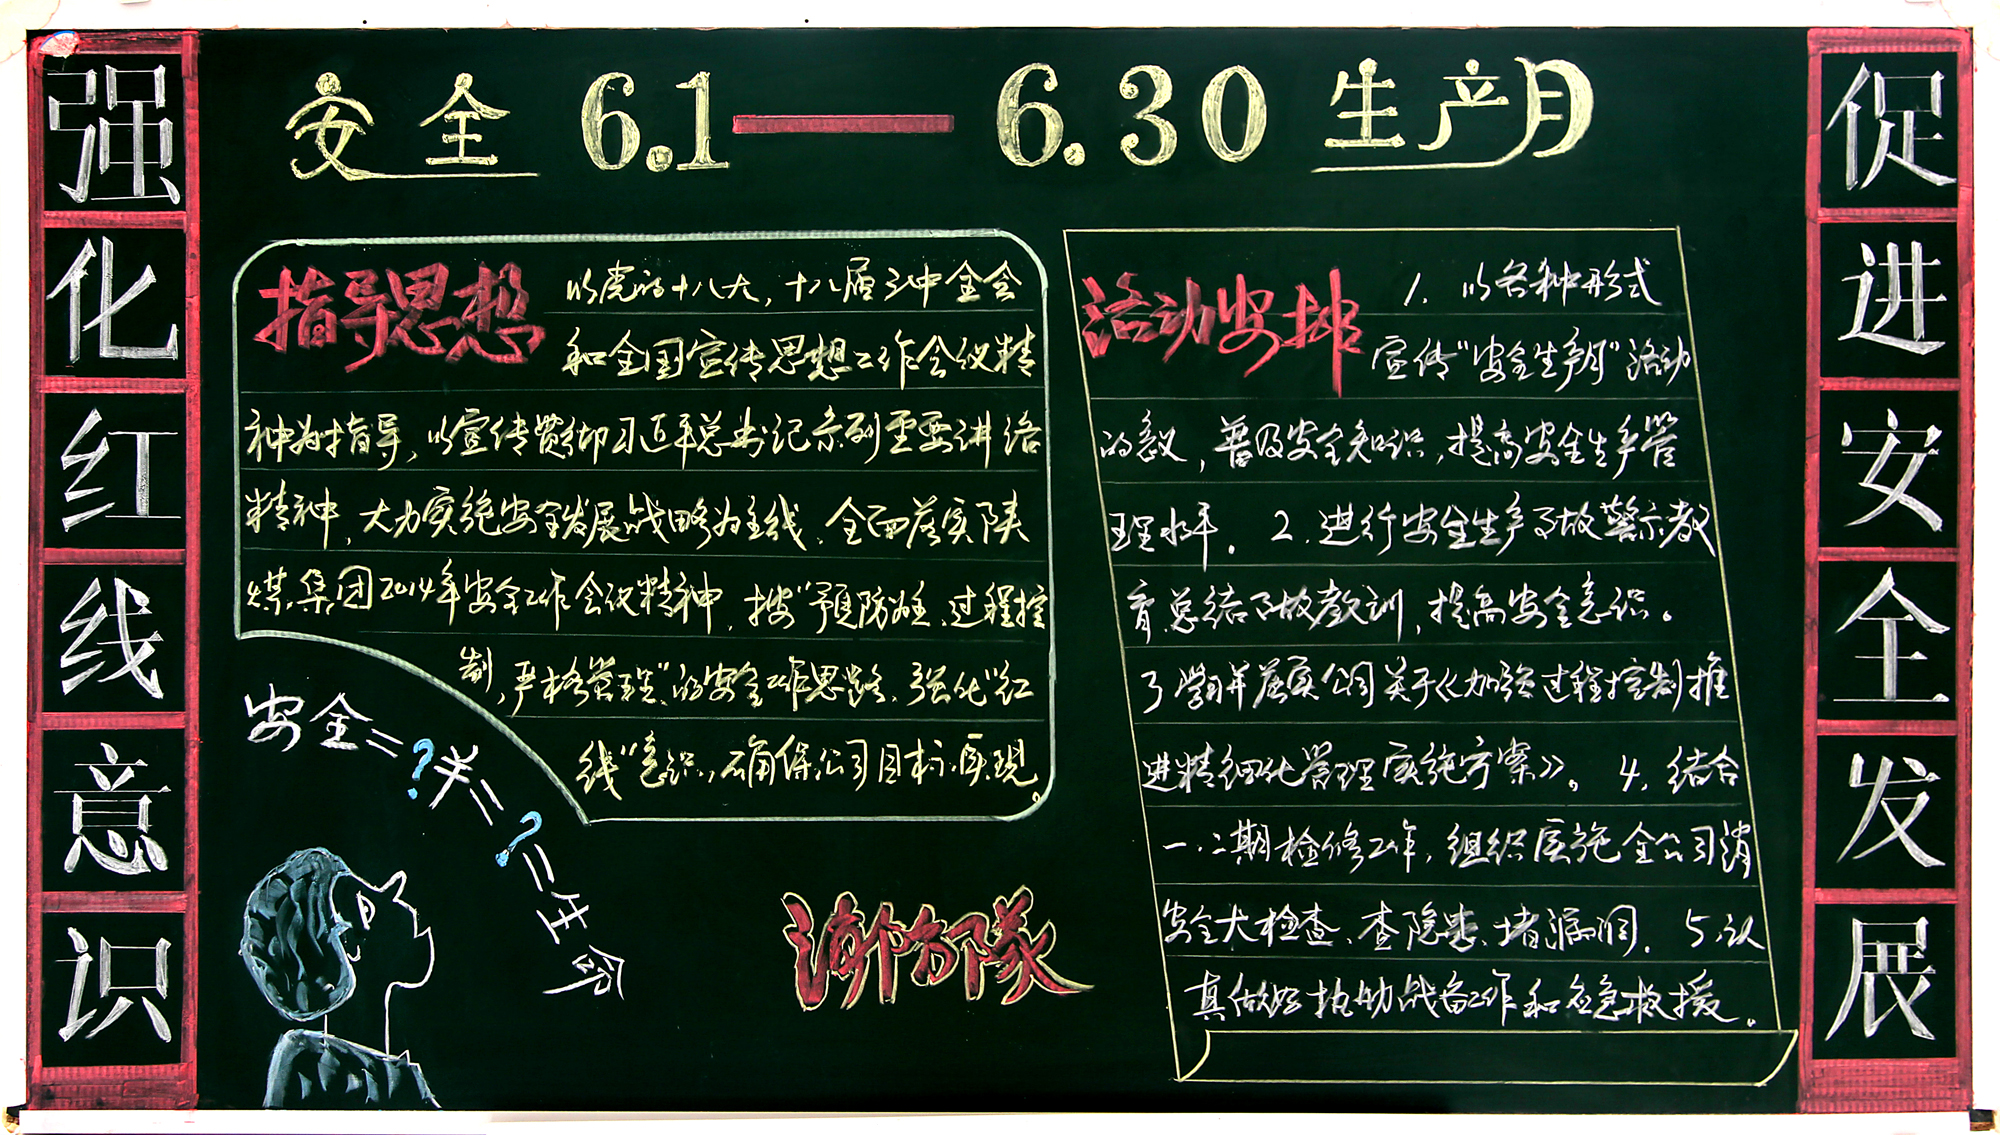 强化红线意识
安全 6.1—6.30 生产月
指导思想
以党的十八大，十八届三中全会
和全国宣传思想工作会议精
神为指导，以宣传贯彻习近平总书记系列重要讲话
精神，大力实施安全发展战略为主线、全面落实陕
煤集团2014年安全工作会议精神，按“预防为主、过程控
制，严格管理”的安全工作思路、强化“红
线”意识，确保公司目标实现。
安全=?关=?=生命
消防队
活动安排
1、以各种形式
宣传“安全生产月”活动
的意义，普及安全知识，提高安全生产管
理水平。2、进行安全生产事故警示教
育总结事故教训，提高安全意识。
3 学习并落实公司关于《加强过程控制推
进精细化管理实施方案》。4、结合
一.二期检修工作，组织实施全公司消
安全大检查、查隐患、堵漏洞。5、认
真做好执勤战备工作和应急救援。
促进安全发展